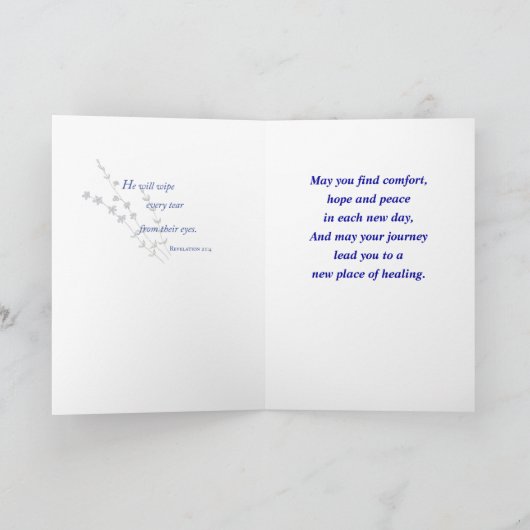 He will wipe
every tear
from their eyes.
Revelation 21:4
May you find comfort,
hope and peace
in each new day,
And may your journey
lead you to a
new place of healing.